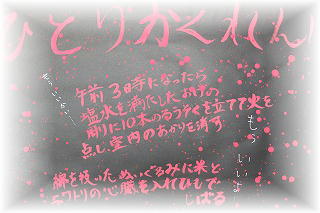 ひとりかくれん
もういいかい
午前3時になったら
塩水を満たしたおけの
周りに10本のろうそくを立てて火を
点し、室内のあかりを消す
もう いいよ
綿を抜いたぬいぐるみに米と
ニワトリの心臓を入れひもで
しばる